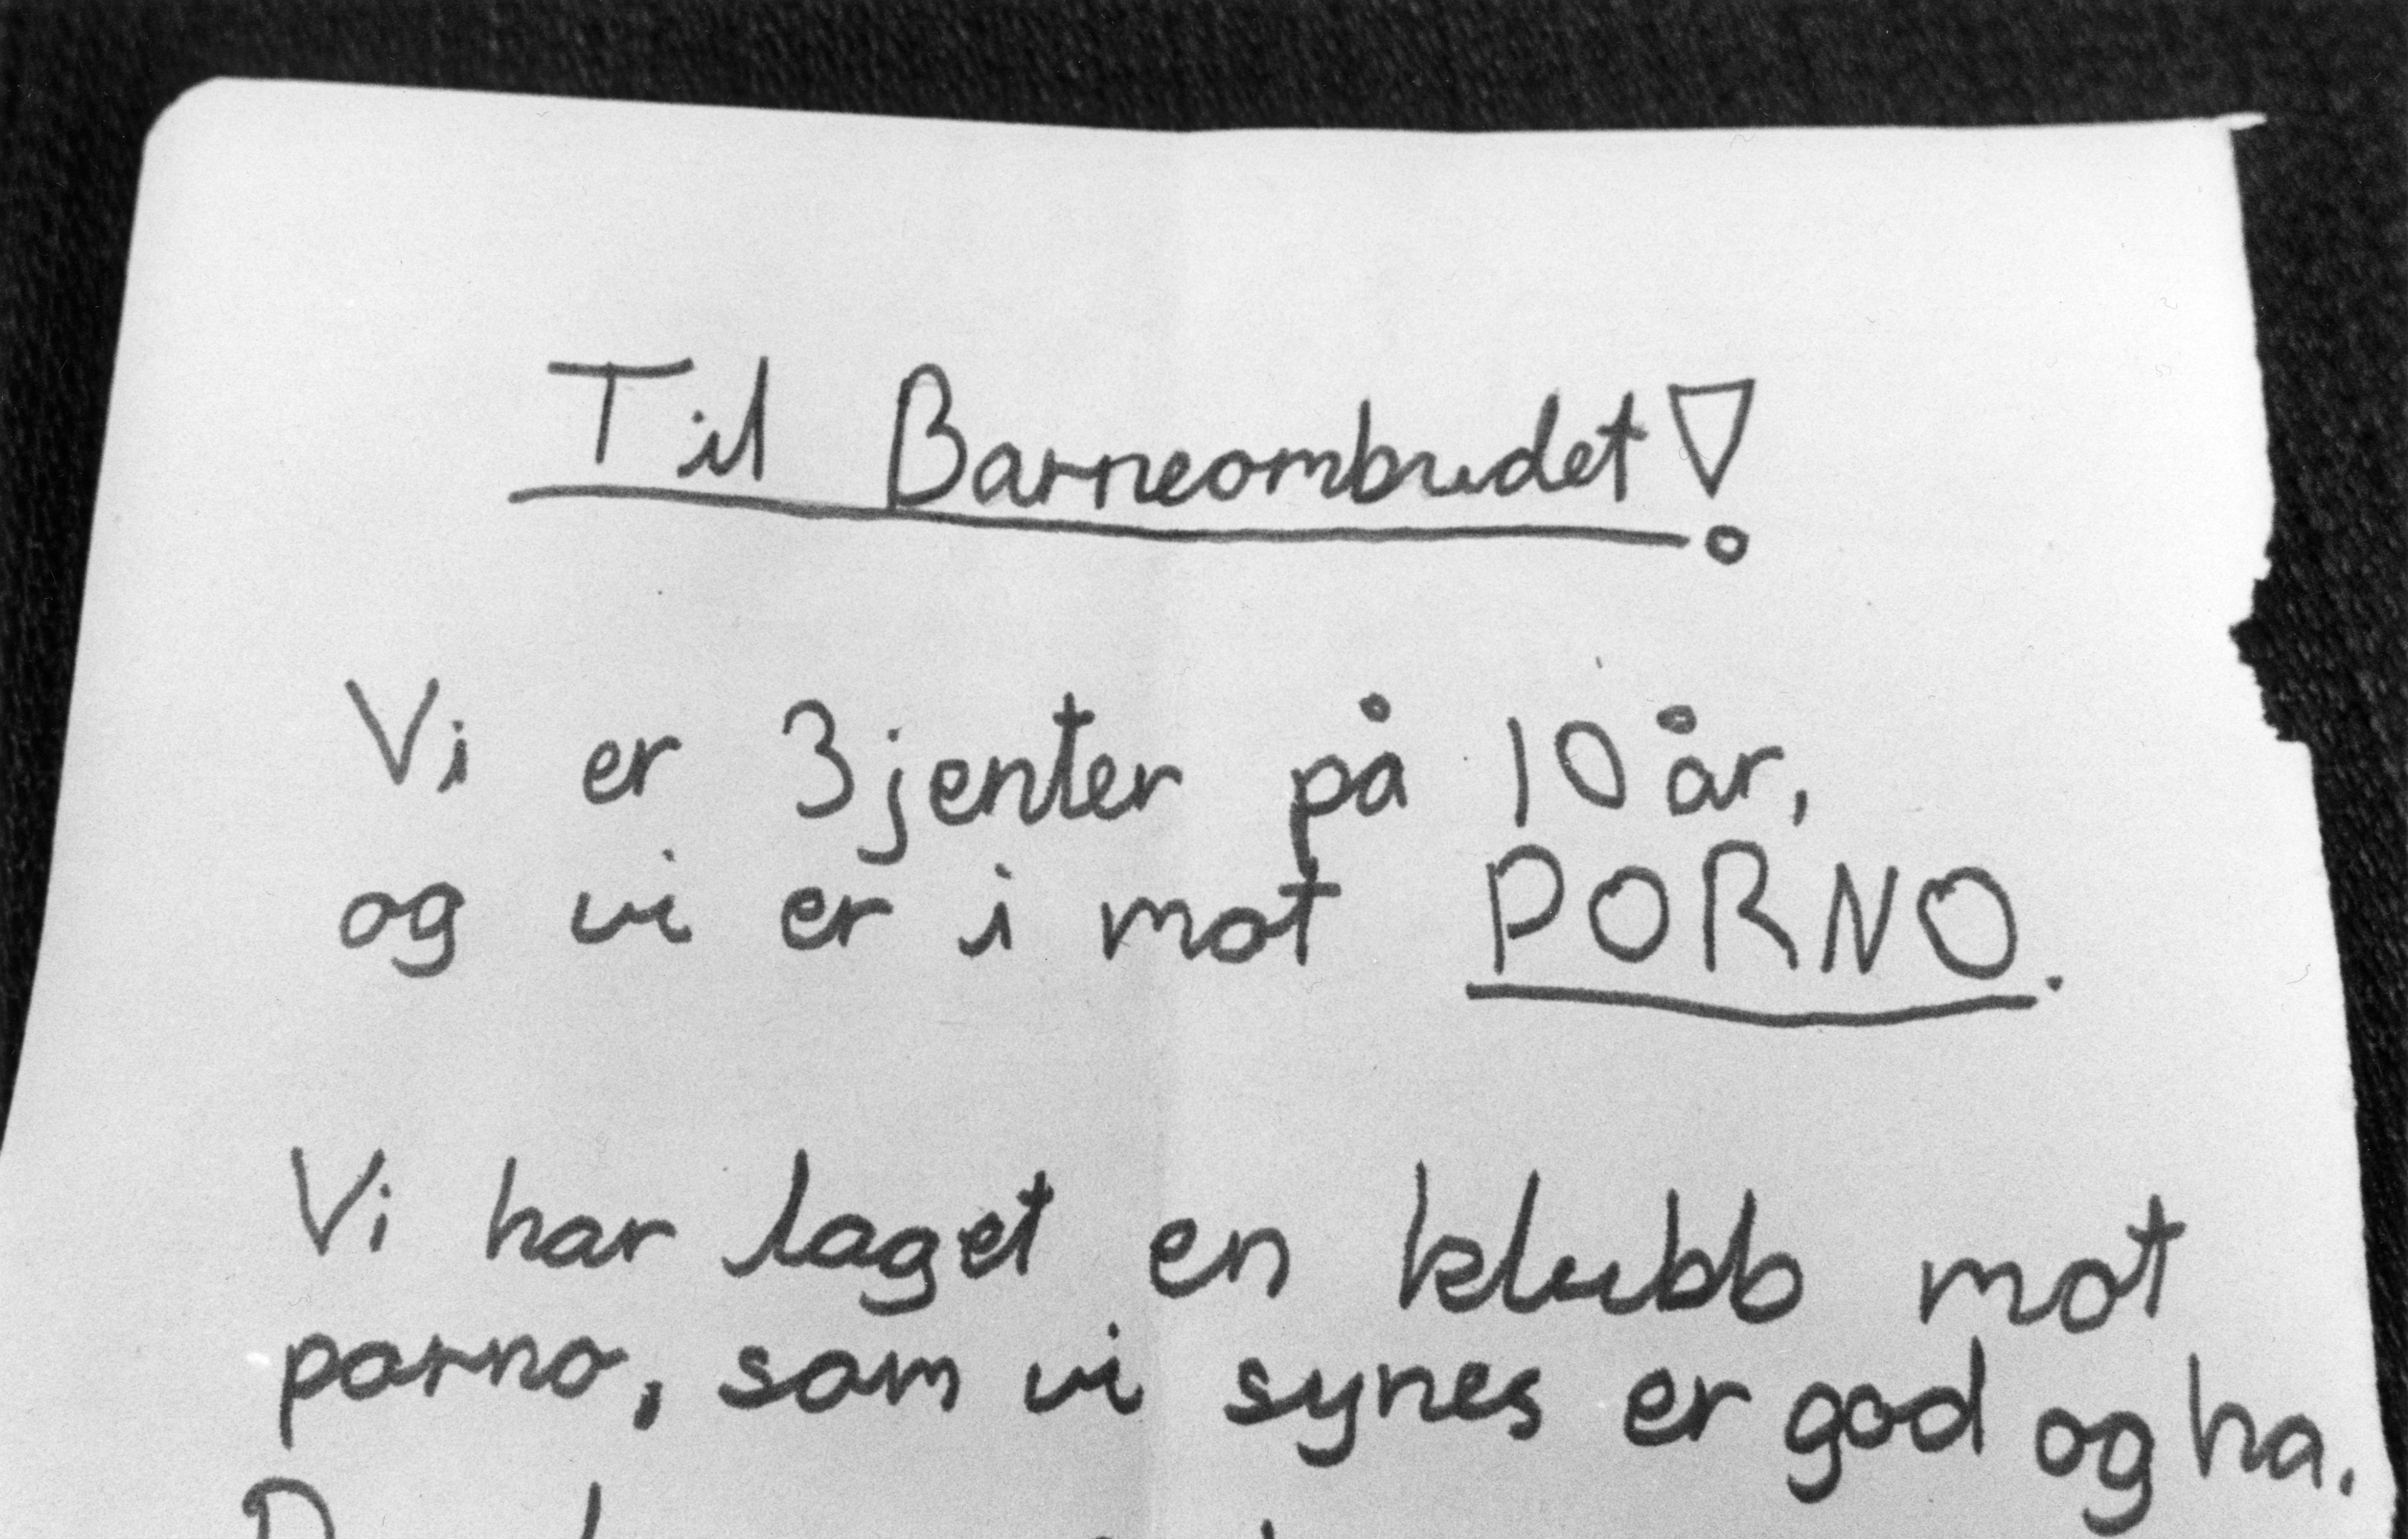 Til Barneombudet!
Vi er 3 jenter på 10 år,
og vi er i mot PORNO.
Vi har laget en klubb mot
porno, som vi synes er god og ha.